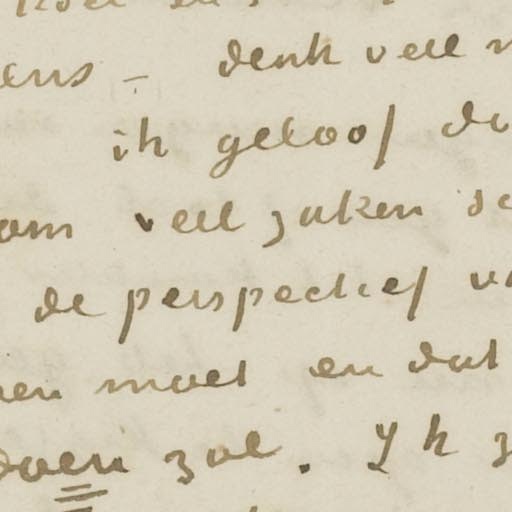 ens – denk veel
ik geloof da
om veel zaken
de perspectief va
en moet en dat
doen zal. Ik z